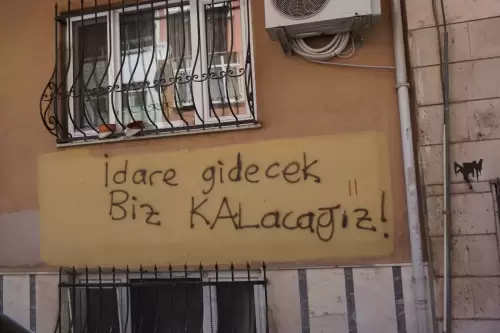 İdare gidecek
Biz KALacağız!